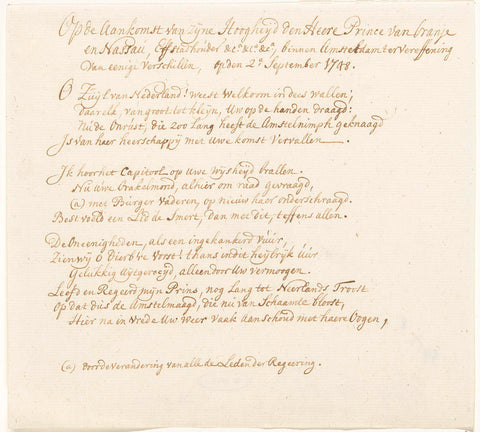 Op de Aankomst van zijne Hoogheyd den Heere Prince van Oranje
en Nassau, Erfstadhouder &c. &c. &c., binnen Amsterdam ter vereffening
van eenige Verschillen, op den 2e September 1748.
O Zuijl van Nederland! weest Welkom in dees wallen;
Daar elk, van groot tot kleijn, Uw op de handen draagd:
Nú de Onrúst, die Zoo lang heeft de Amstelnimph geknaagd
Is van haer heerschappij met Uwe komst Vervallen.
Ik hoor het Capitool op Uwe Wysheyd brallen.
Nú Uwe Orakelmond, alhier om raad gevraagd,
(a) met Bürger vaderen, op nieuws haer onderschraagd.
Best voeld een Lid de Smert, dan met die, teffens allen.
De Oneenigheden, als een ingekankerd vúúr,
Zien wij ô Dierb're Vorst! thans in dit heijlrijk úúr
Gelukkig Uytgeroeyd, alleen door Uw vermogen.
Leef d en Regeerd mijn Prins, nog Lang tot Neerlands Troost
Op dat dús de Amstelmaagd, die nú van Schaamte bloost,
Hier na in Vrede Uw weer vaak aanschoud met haere Oogen,
(a) door de verandering van alle de Leden der Regeering.